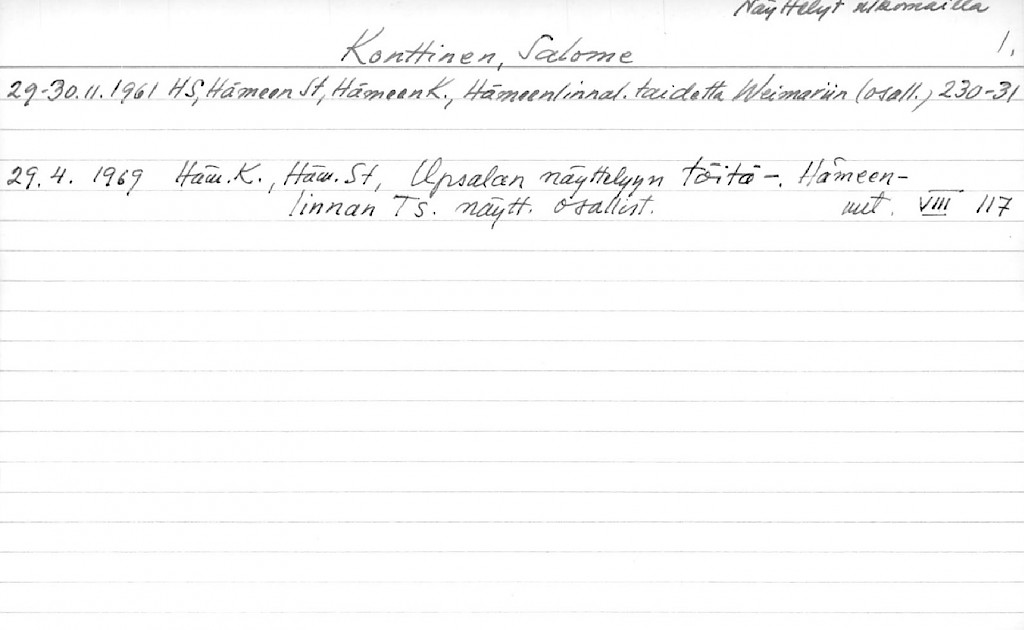 Näyttelyt ulkomailla
1.
Konttinen, Salome
29-30.11.1961 HS, Hämeen St, Hämeen K., Hämeenlinnal. taidetta Weimariin (osall.) 230-31
29.4. 1969 Häm.K., Häm.St, Upsalan näyttelyyn töitä -. Hämeen-
linnan TS. näytt. osallist. VIII 117